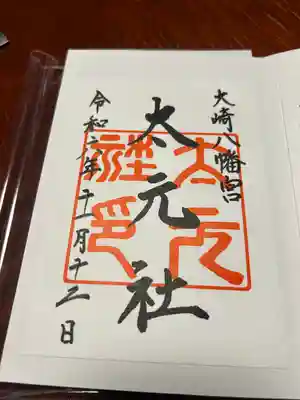 大崎八幡宮
太元社
令和六年十一月十二日
太元社印